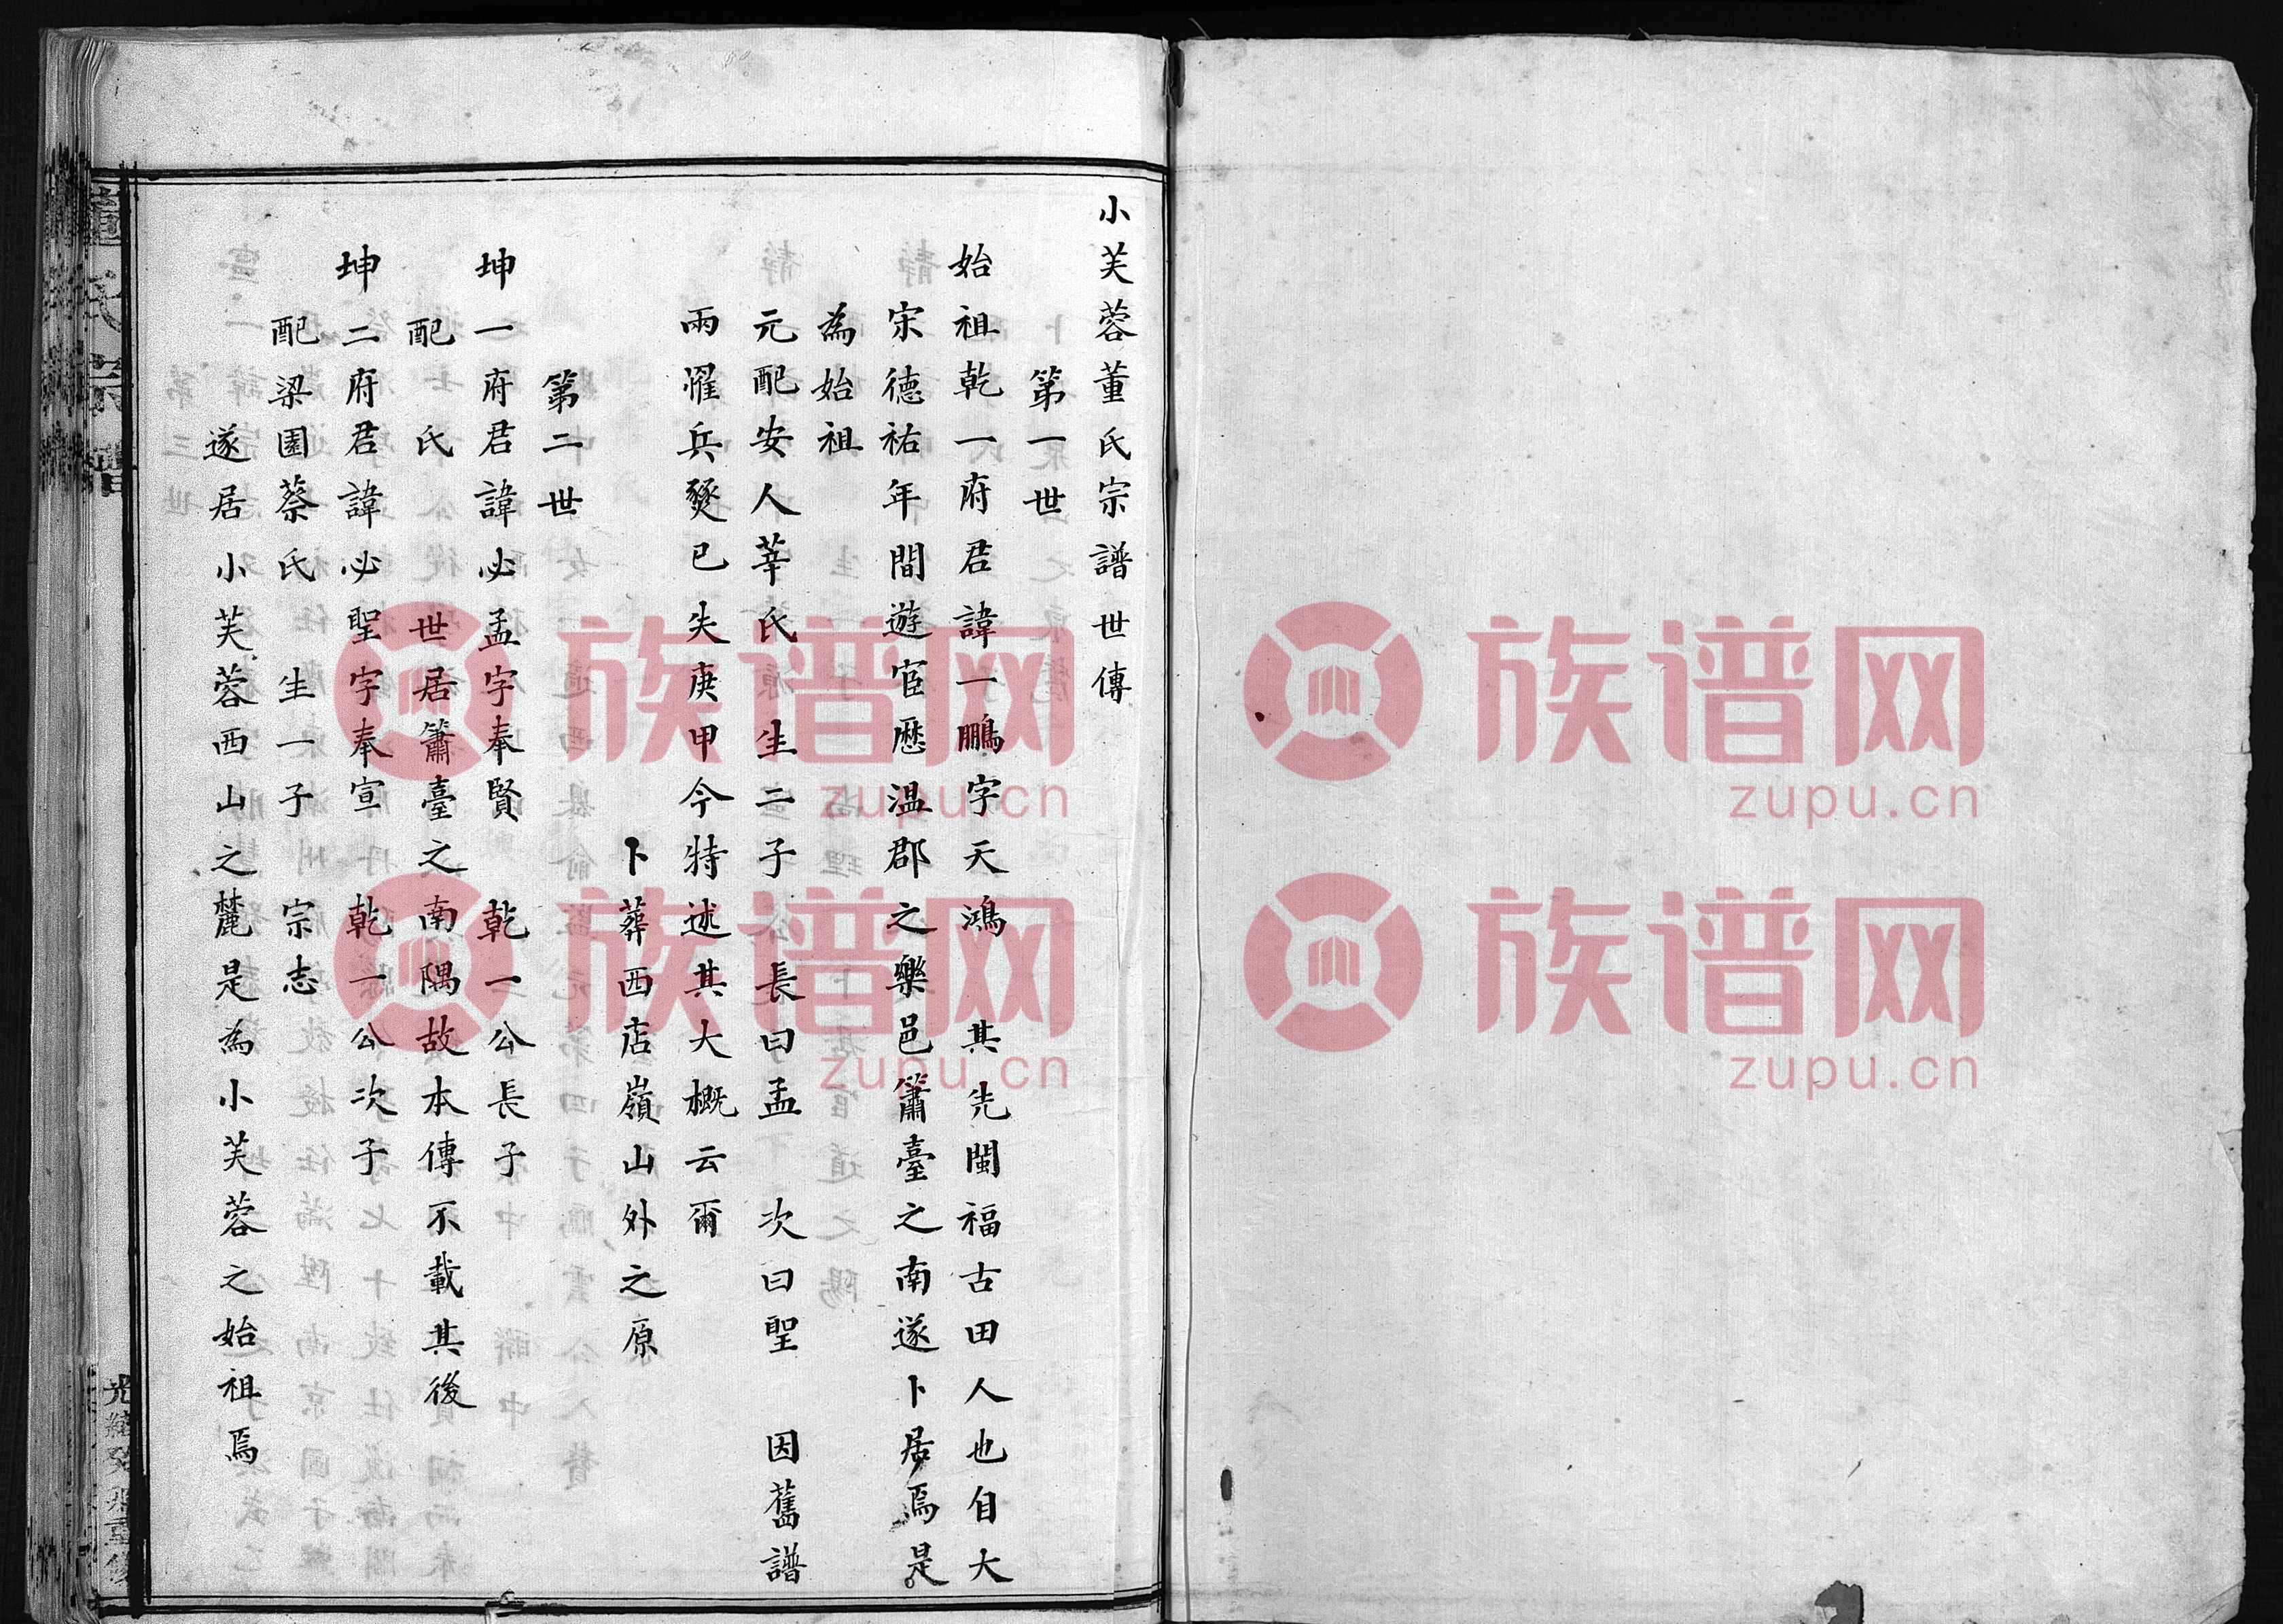 小芙蓉董氏宗譜世傳
第一世
始祖乾一府君諱一鵬字天鴻 其先閩福古田人也自大
宋德祐年間遊宦歷溫郡之樂邑簫臺之南遂卜居焉是
為始祖
元配安人莘氏 生二子 長曰孟 次曰聖 因舊譜
兩懼兵燹已失庚甲今特述其大概云爾
卜葬西店嶺山外之原
第二世
坤一府君諱必孟字奉賢 乾一公長子
配 氏 世居簫臺之南隅故本傳不載其後
坤二府君諱必聖字奉宣 乾一公次子
配梁園蔡氏 生一子 宗志
遂居小芙蓉西山之麓是為小芙蓉之始祖焉
董氏宗譜
光緒 重修
族谱网
zupu.cn
族谱网
zupu.cn
族谱网
zupu.cn
族谱网
zupu.cn